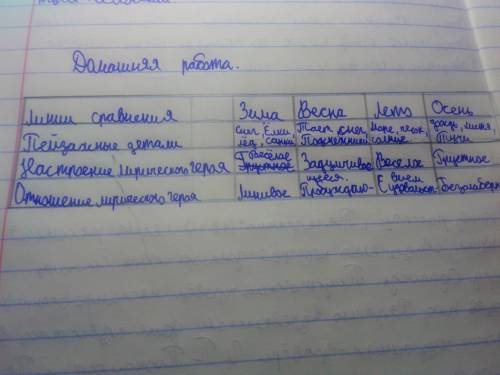 Домашняя работа.
Линии сравнения Зима Весна Лето Осень
Пейзажные детали снег, Ёлки, лёд, санки Тает снег, Подснежники Море, песок, солнце дождь, Тучи
Настроение лирического героя Весёлое Задумчивое Веселое Грустное
Отношение лирического героя Ленивое Пробуждаю-щееся. С удовольст-вием